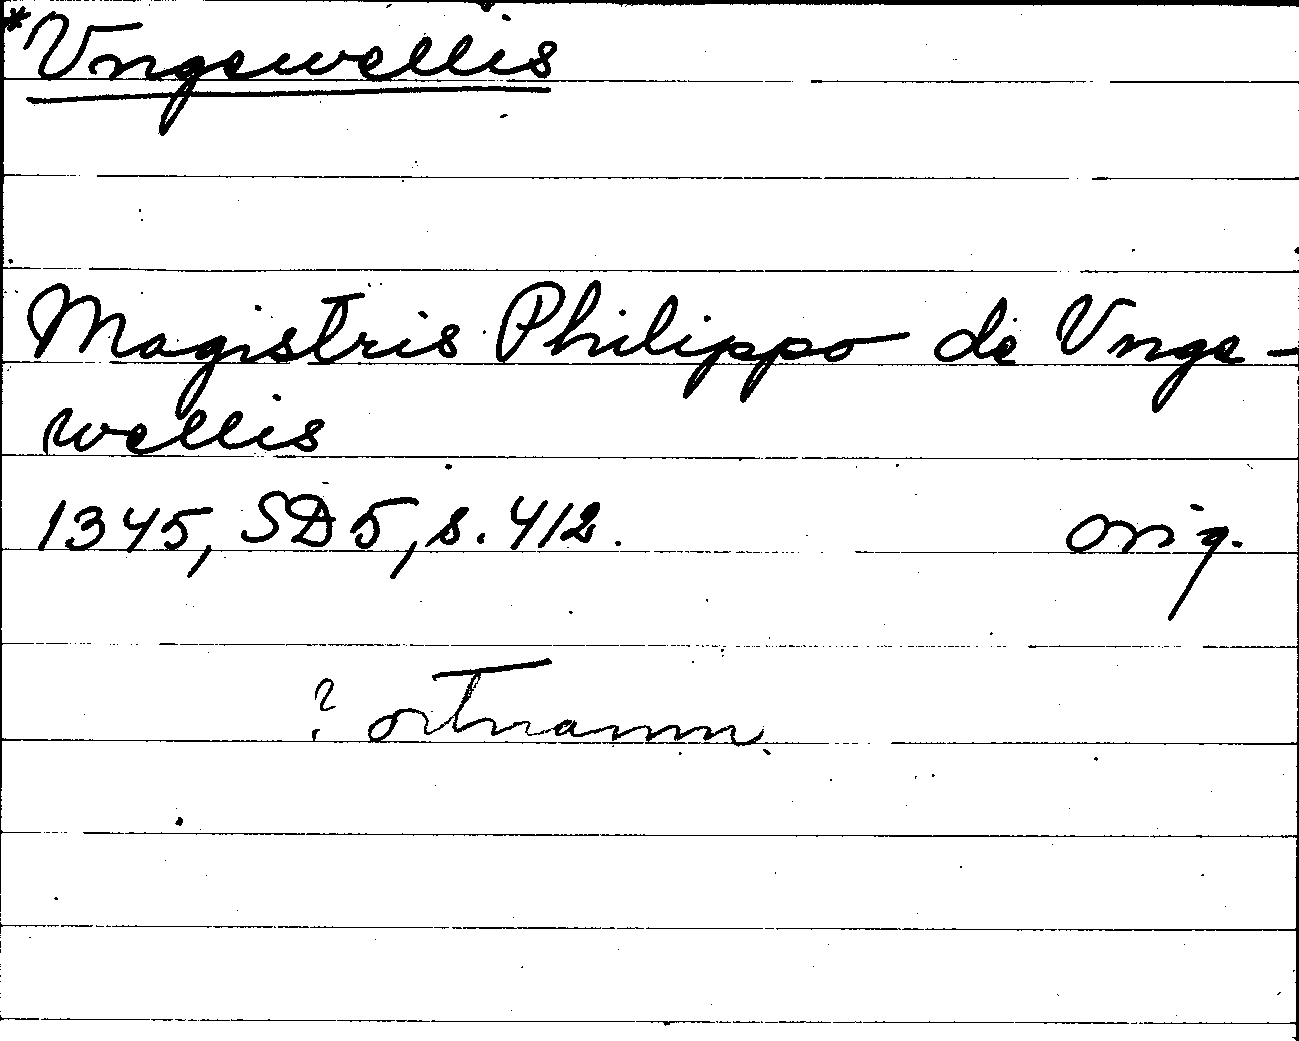 *Vngewellis
Magistris Philippo de Vnge-
wellis
1345, SD5, s. 412. orig.
? ortnamn